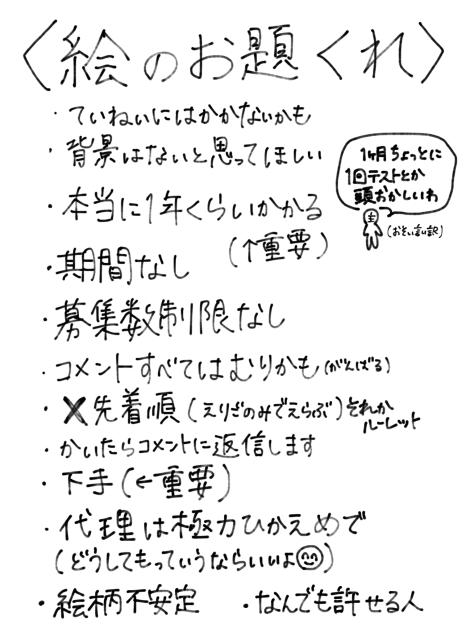 〈絵のお題くれ〉
・ていねいにはかかないかも
・背景はないと思ってほしい
1ヶ月ちょっとに
1回テストとか
頭おかしいわ
・本当に1年くらいかかる
(おそい言い訳)
(↑重要)
・期間なし
・募集数制限なし
・コメントすべてはむりかも(がんばる)
・✕先着順(えりごのみでえらぶ)それか
ルーレット
・かいたらコメントに返信します
・下手(←重要)
・代理は極力ひかえめで
(どうしてもっていうならいいよ😊)
・絵柄不安定 ・なんでも許せる人